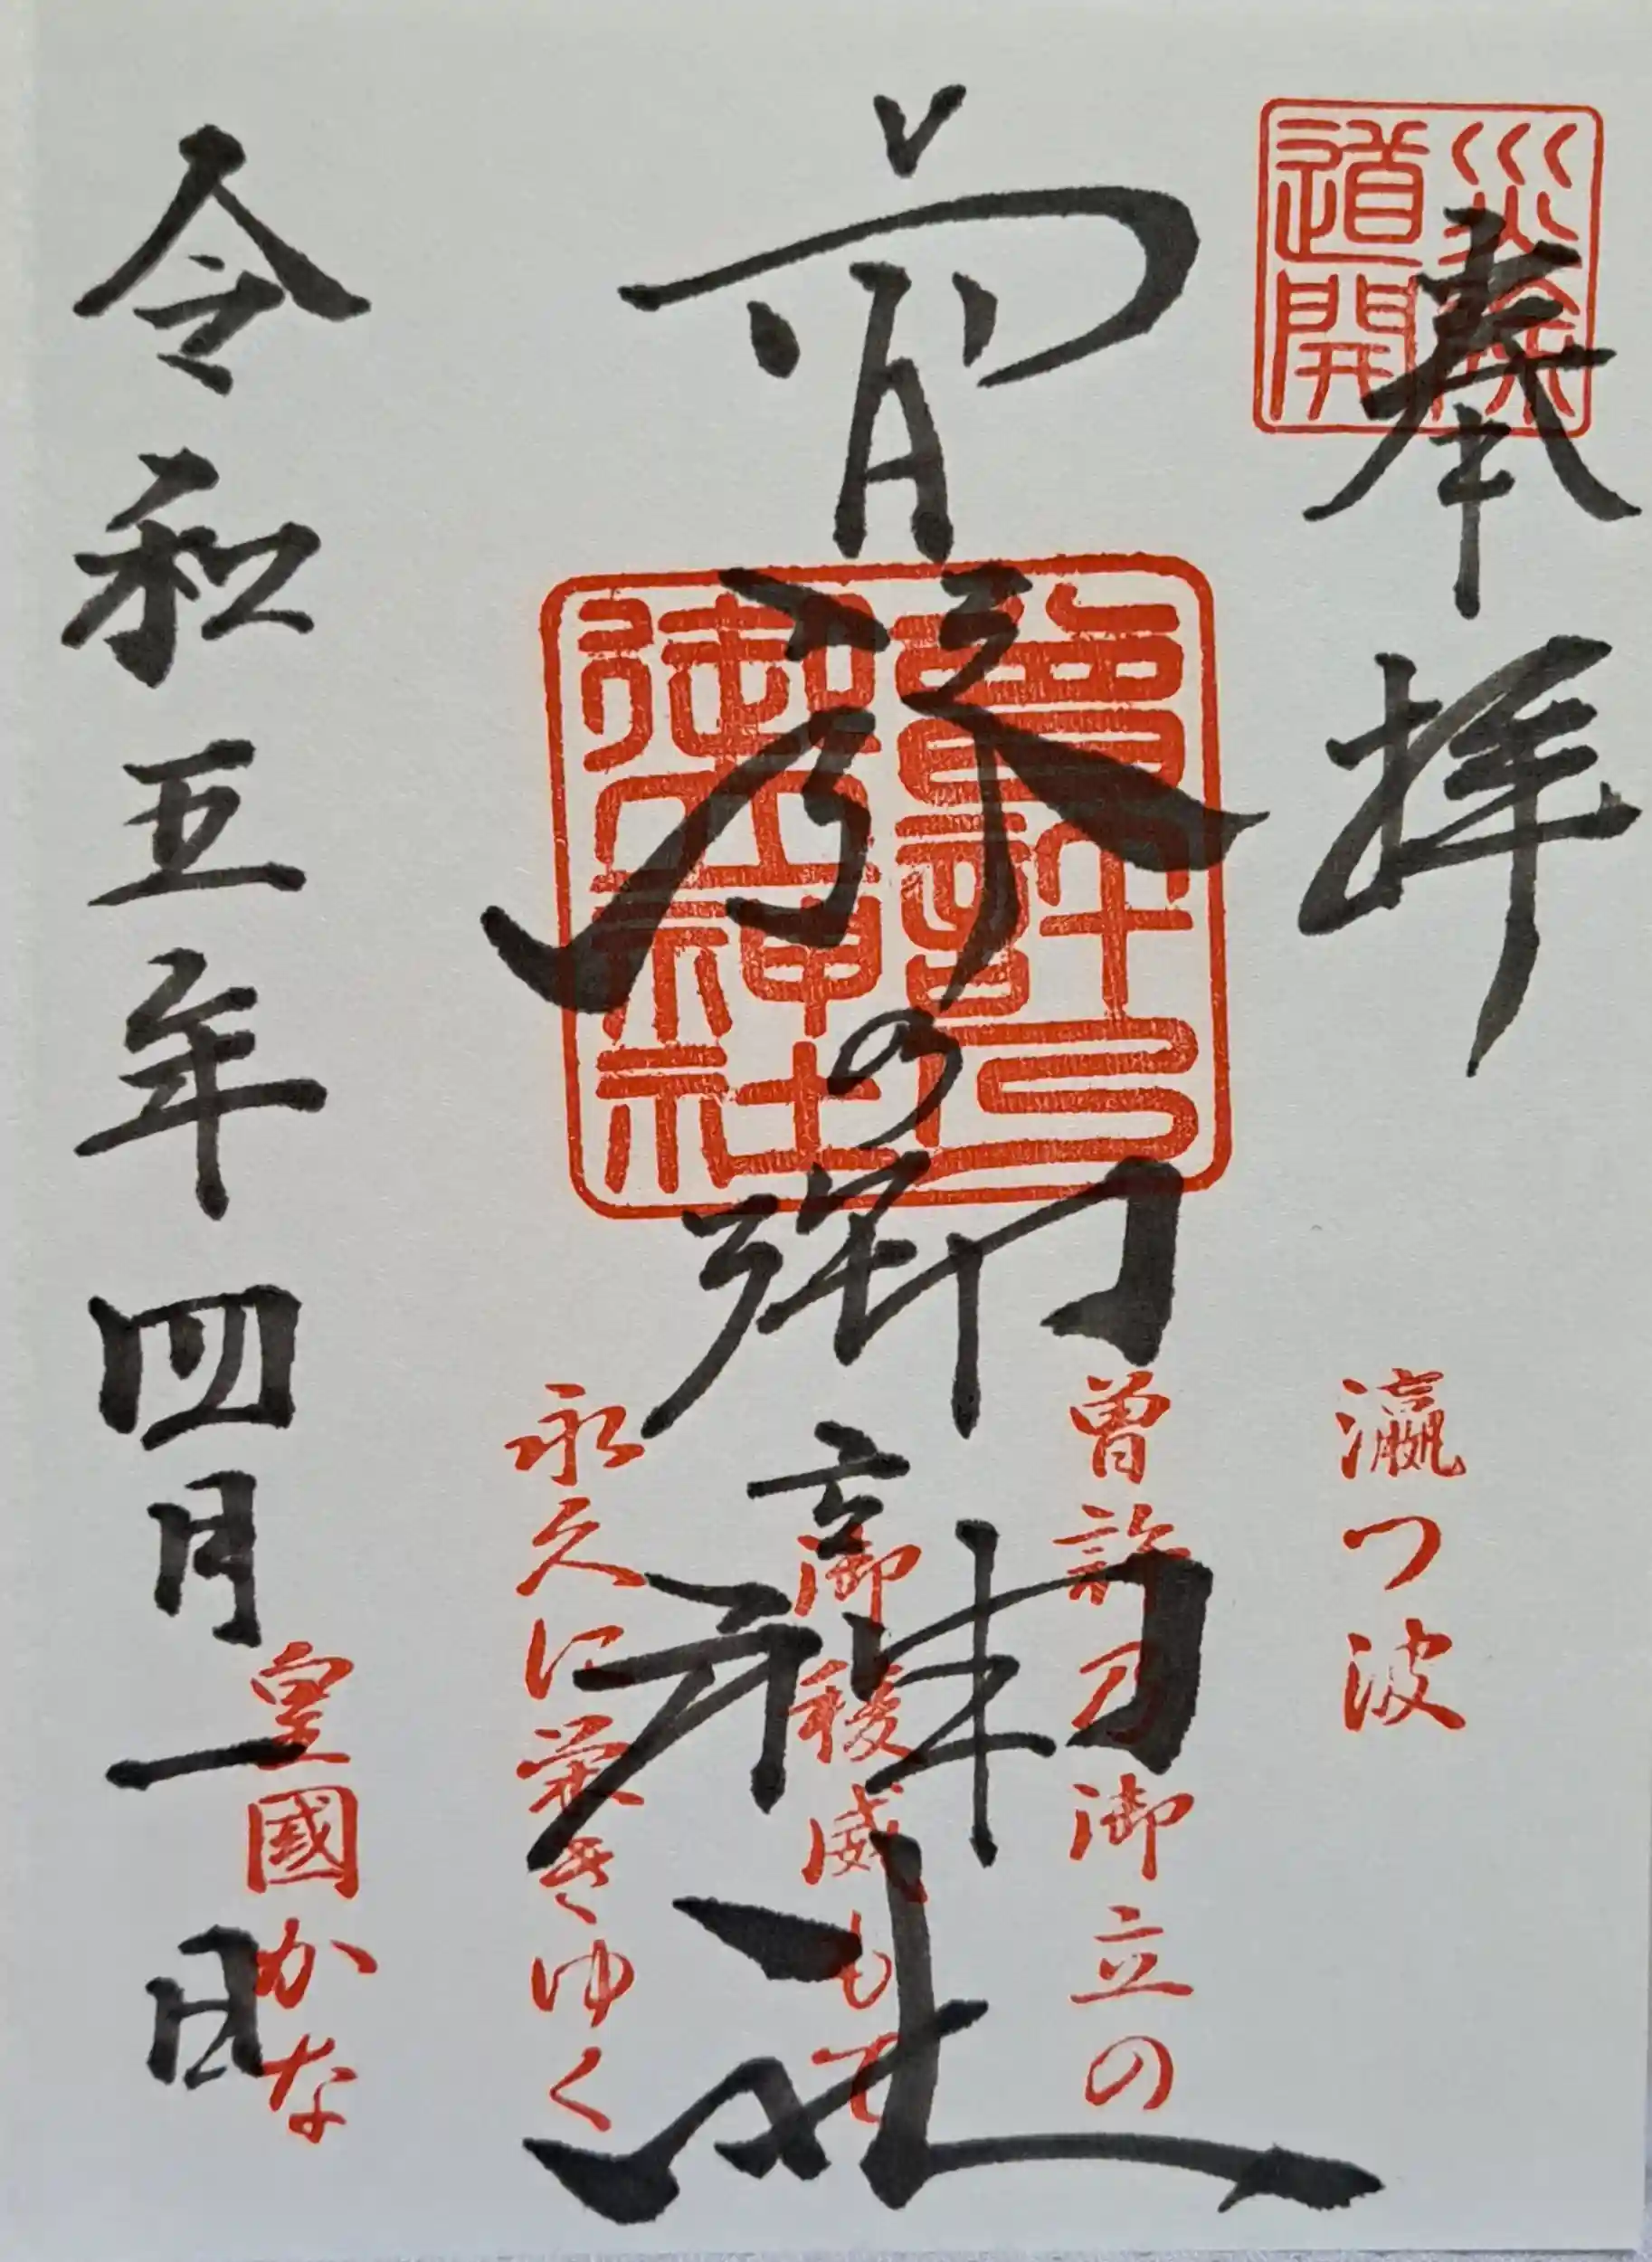 災除
道開
奉拝
曽許の御立神社
曾許乃
御立神社
瀛つ波
曽許乃御立の
御稜威もて
永久に栄きゆく
皇國かな
令和五年四月一日